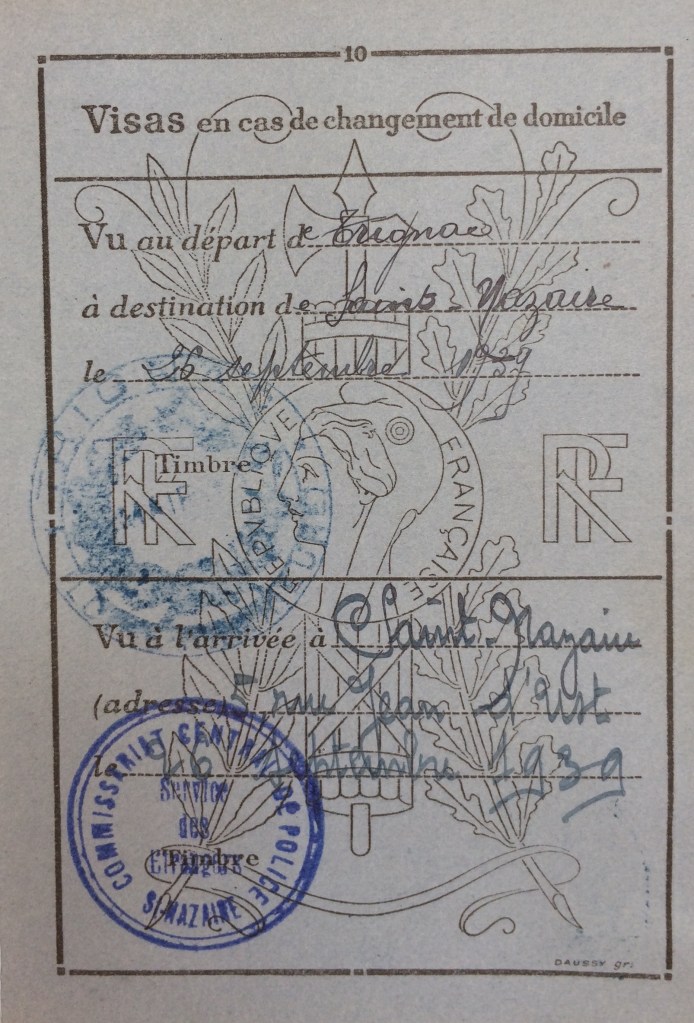 10
Visas en cas de changement de domicile
Vu au départ de Trignac
à destination de Saint-Nazaire
le 26 septembre 1939
RF
Timbre
RF
REPVBLIQVE FRANÇAISE
Vu à l'arrivée à Saint-Nazaire
(adresse) 5 rue Jean d'Ust
le 26 septembre 1939
COMMISSARIAT CENTRAL DE POLICE
Service
des
Etrangers
Timbre
St NAZAIRE
DAUSSY gr.